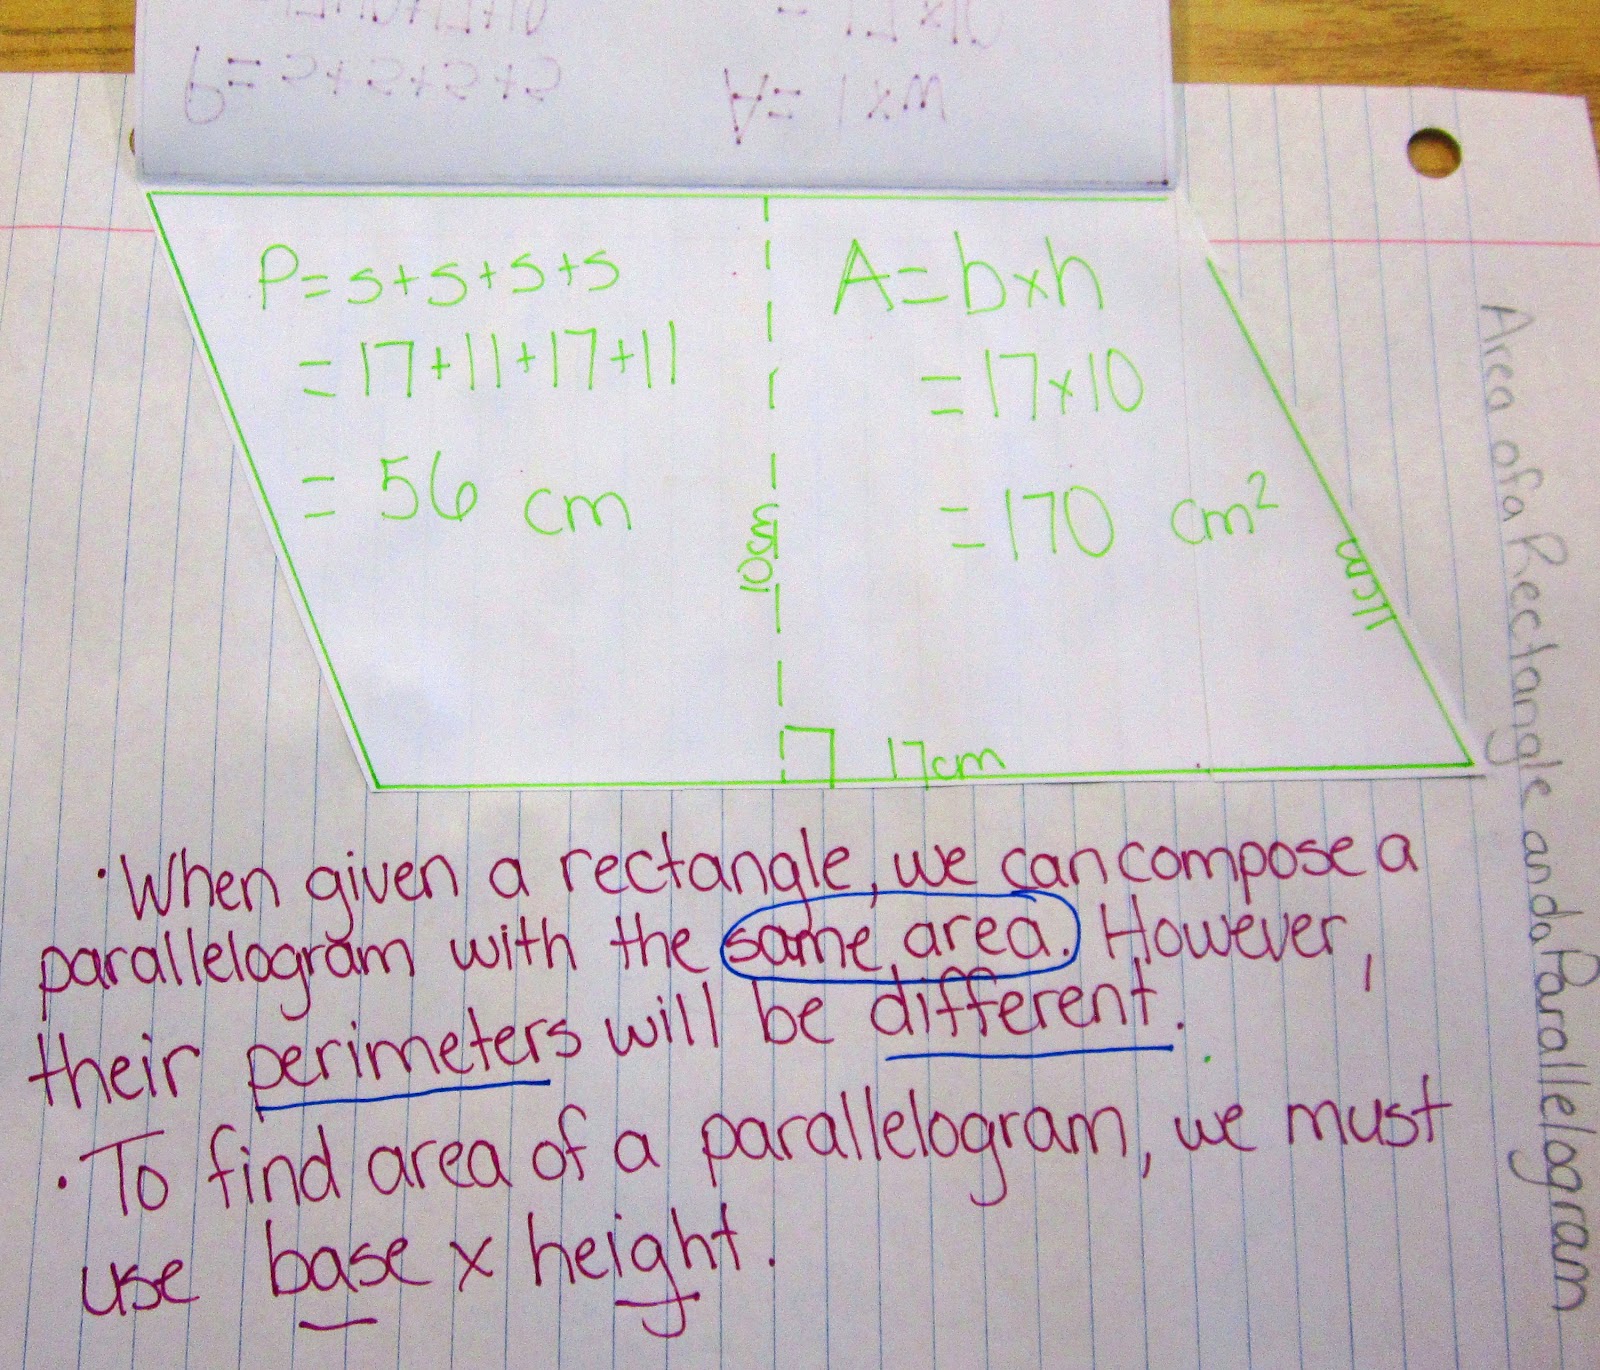 P = s+s+s+s
= 17+11+17+11
= 56 cm
A = b x h
= 17 x 10
= 170 cm²
10cm
11cm
17cm
Area of a Rectangle and a Parallelogram
• When given a rectangle, we can compose a
parallelogram with the same area. However,
their perimeters will be different.
• To find area of a parallelogram, we must
use base x height.
P = s+s+s+s
A = l x w